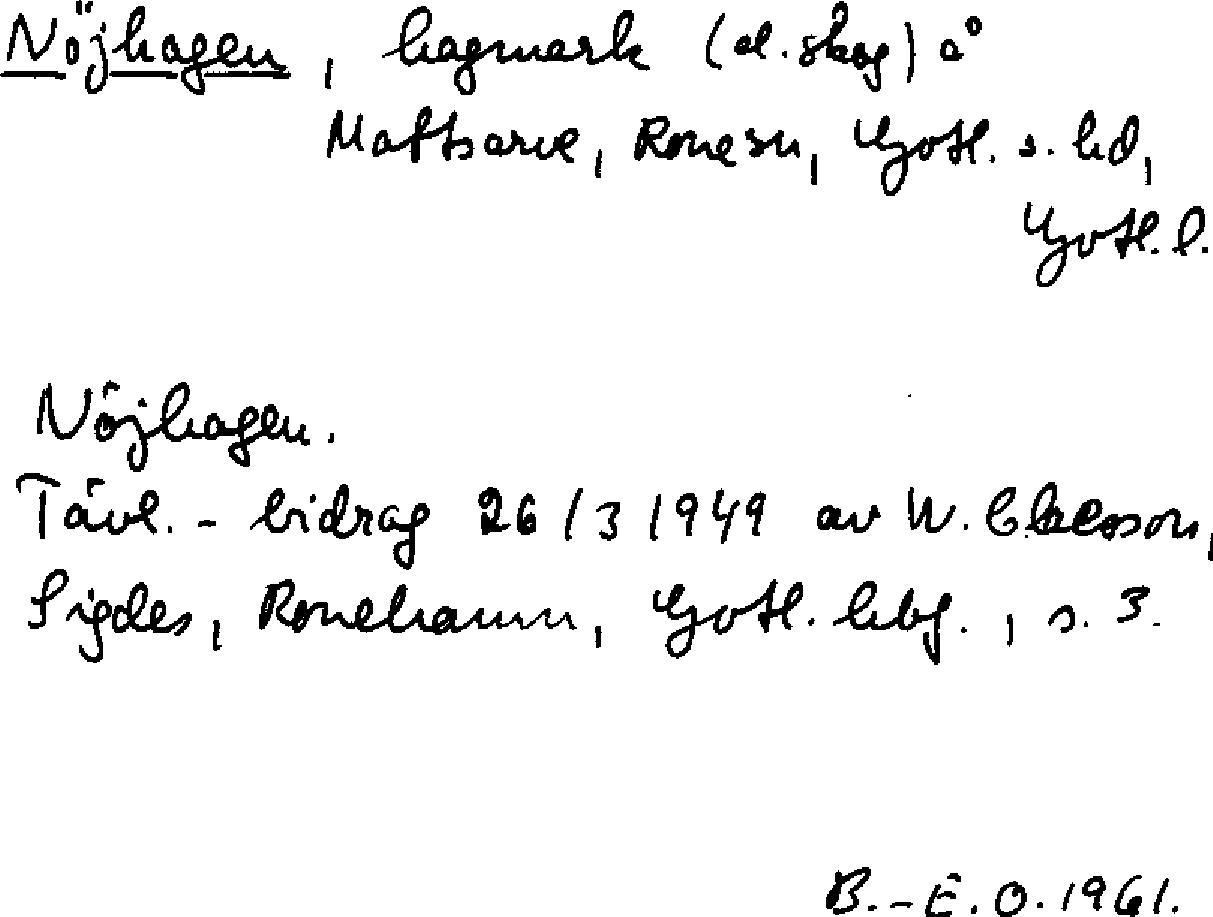 Nöjhagen, hagmark (el. skog) å
Mattsarve, Rone sn, Gotl. s. hd,
Gotl. l.
Nöjhagen.
Tävl. - bidrag 26/3 1949 av W. Claesson,
Sigdes, Ronehamn, Gotl. hbg., s. 3.
B.-E. O. 1961.